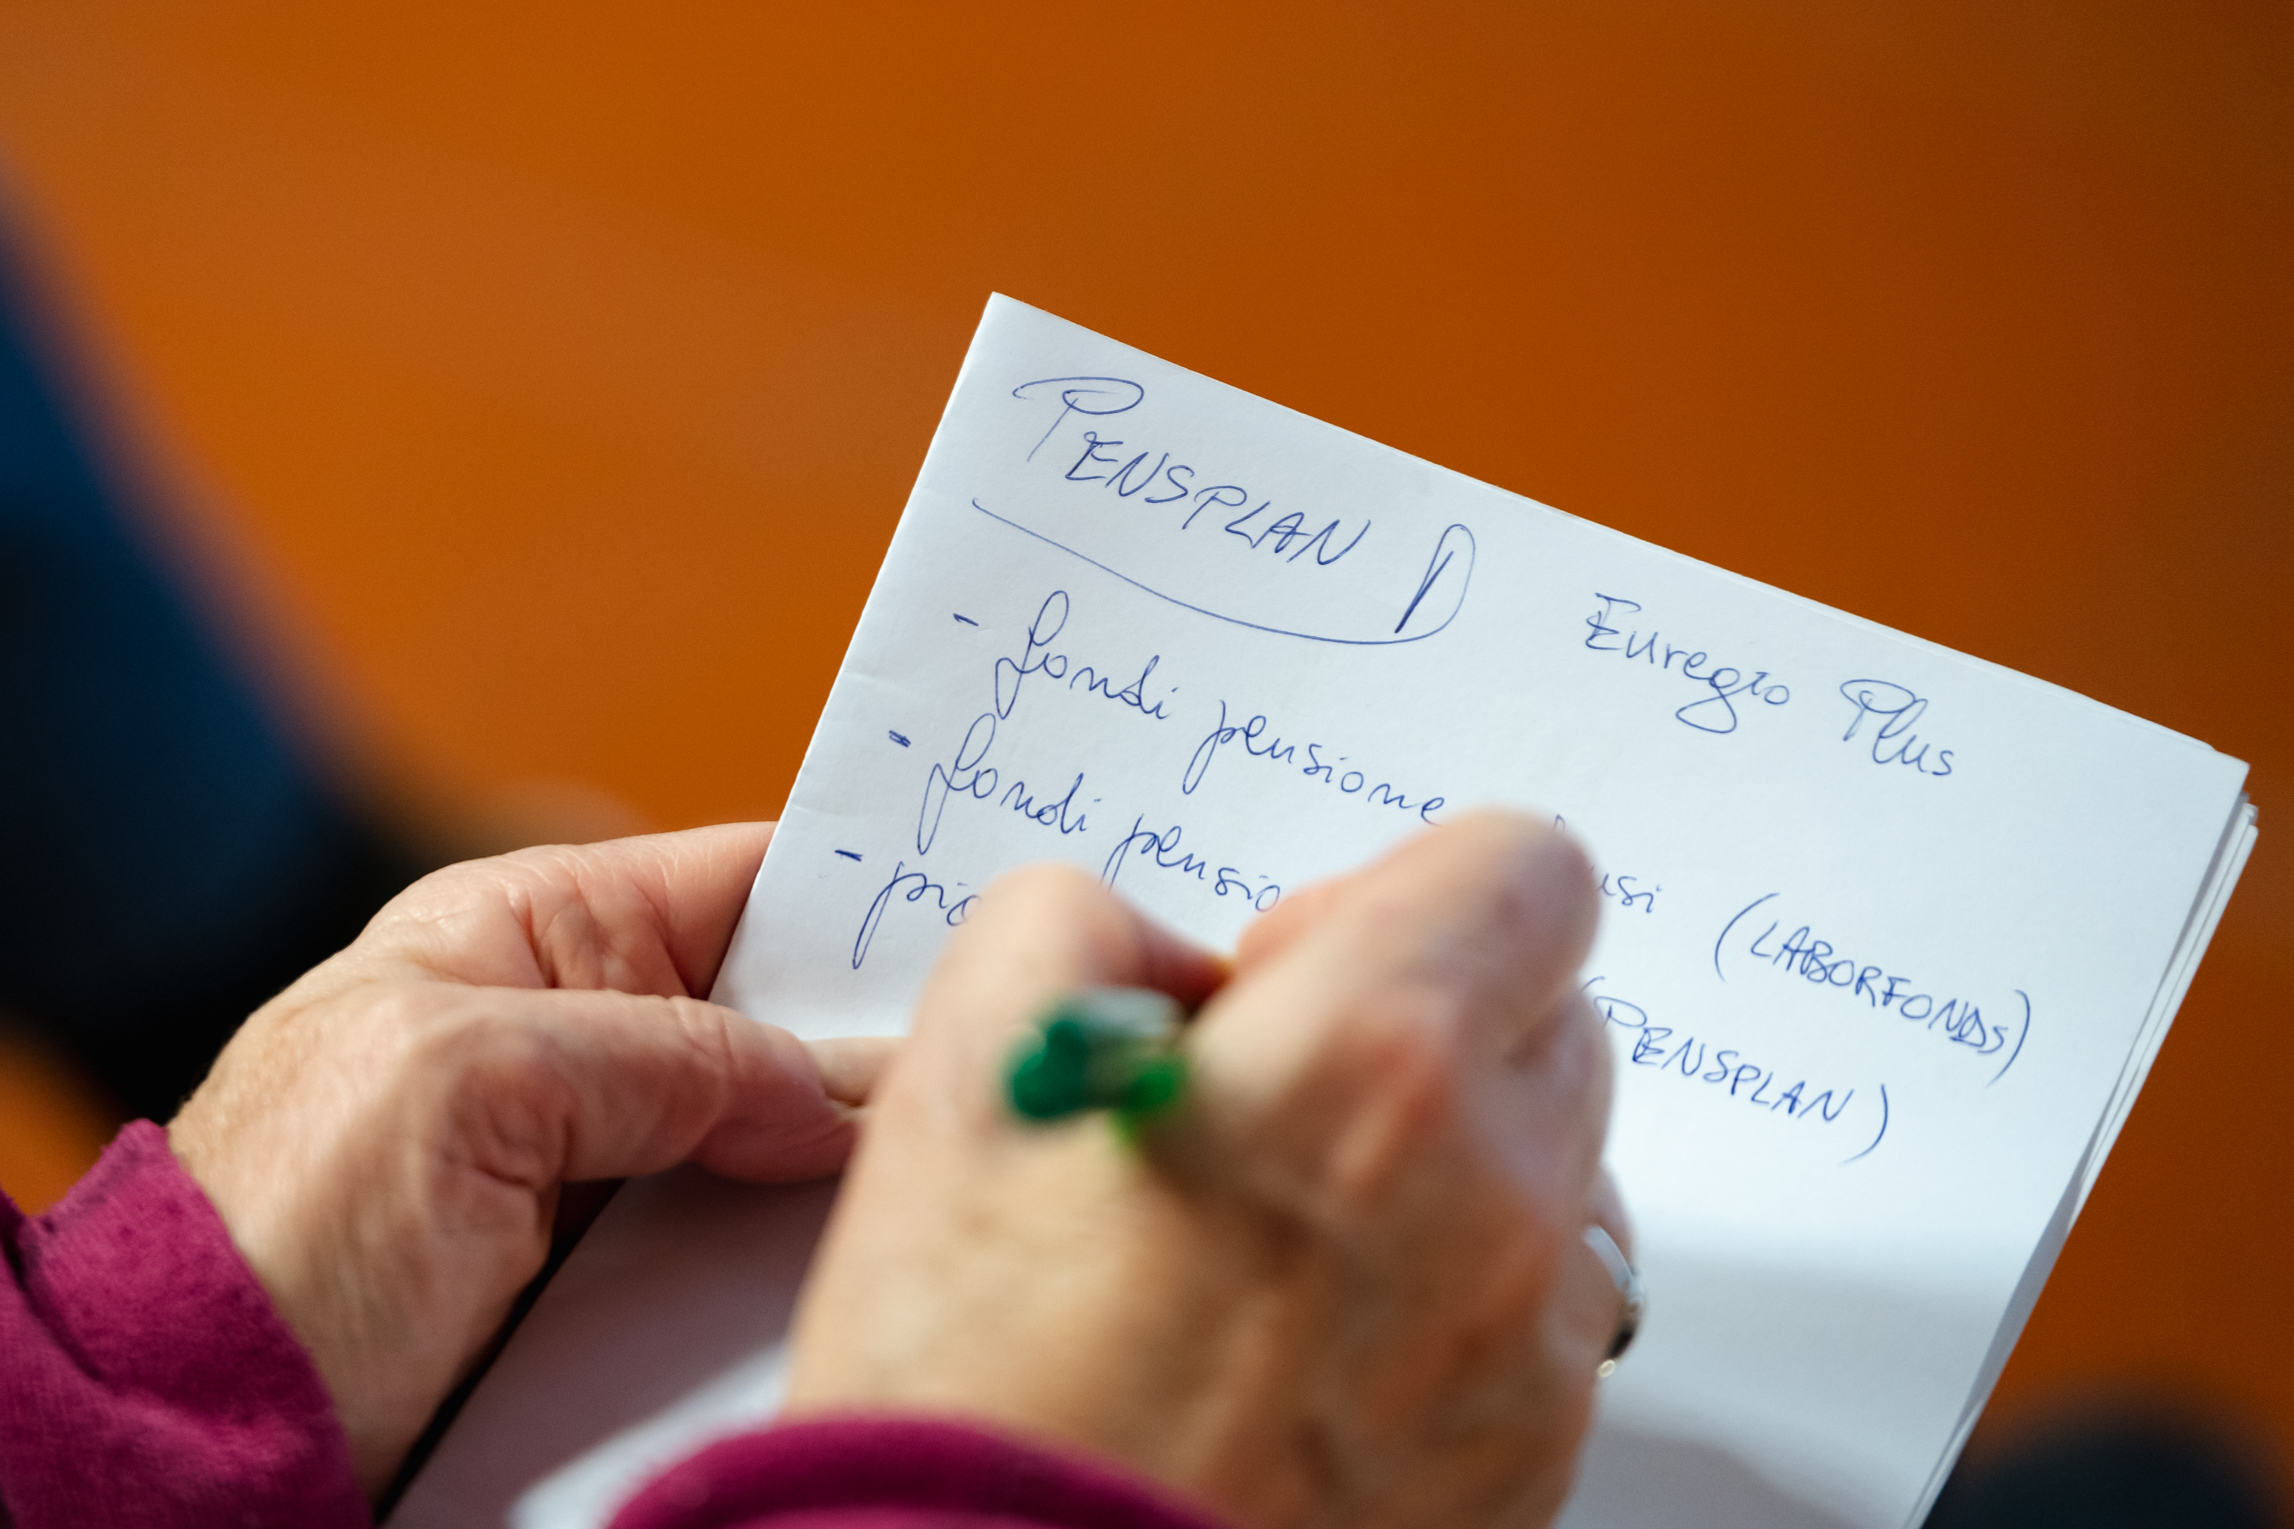 PENSPLAN Euregio Plus
- fondi pensione (LABORFONDS)
- fondi (PENSPLAN)
-